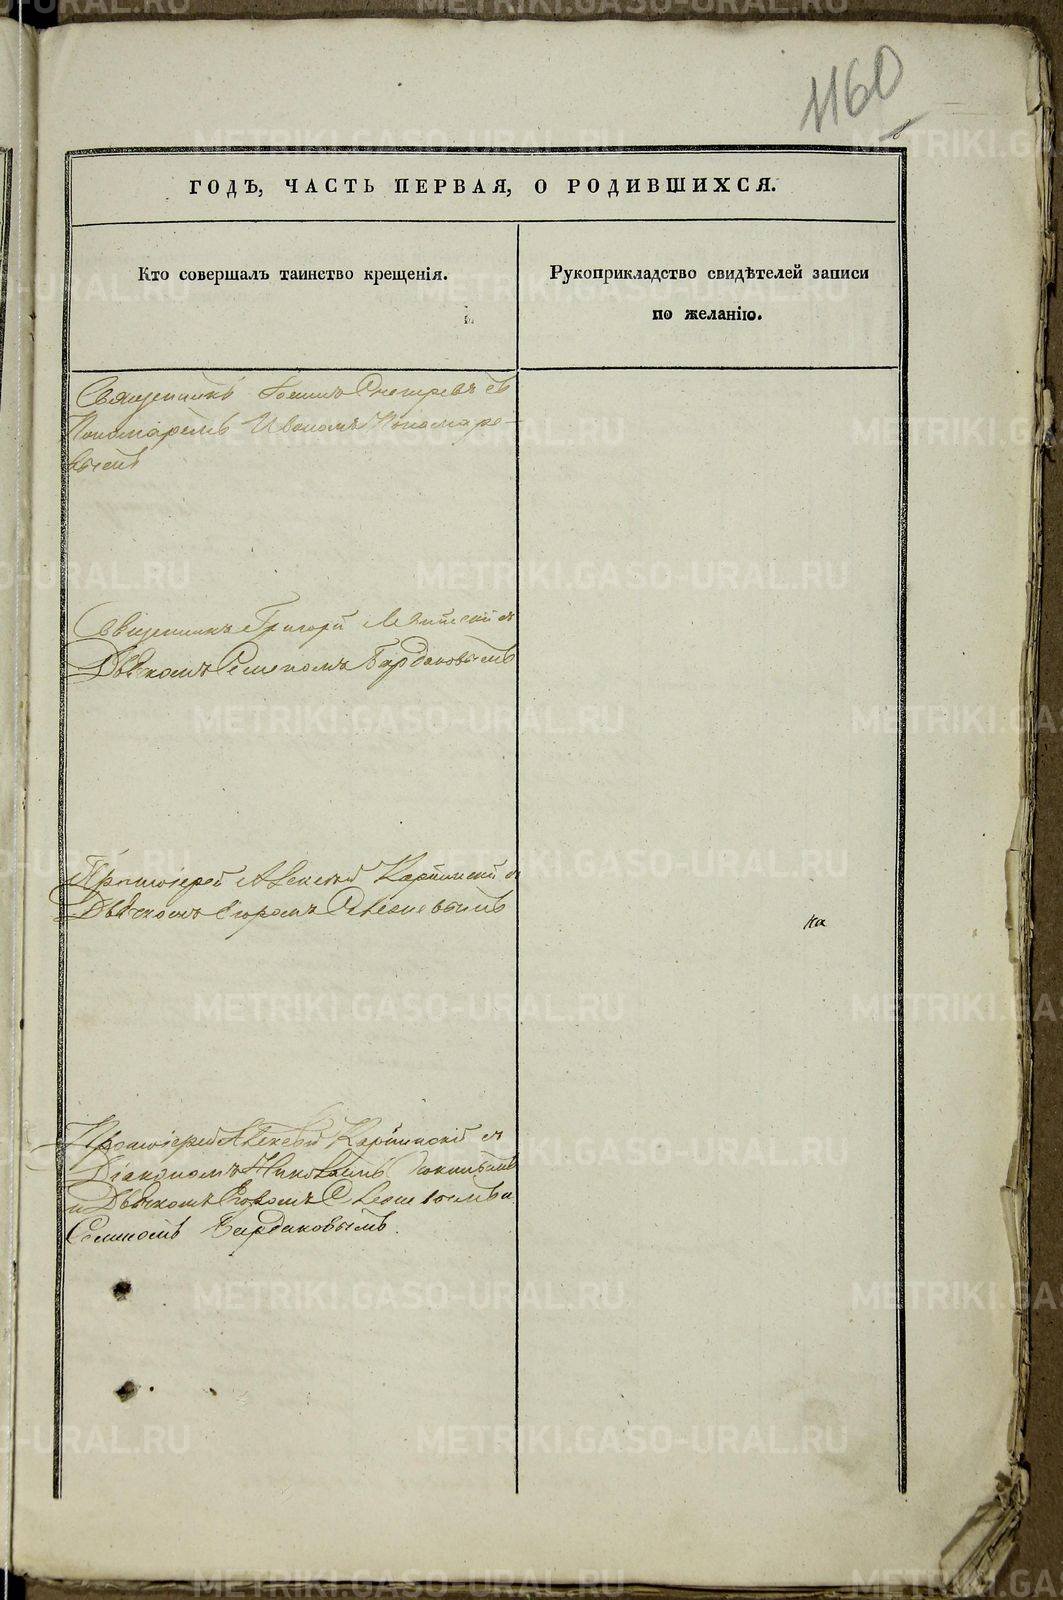 1160
ГОДЪ, ЧАСТЬ ПЕРВАЯ, О РОДИВШИХСЯ.
Кто совершалъ таинство крещенія.
Рукоприкладство свидѣтелей записи
по желанію.
Священникъ Іоаннъ съ
Пономаремъ Иваномъ Пономаре-
вымъ
Священникъ Григорій съ
Дьячкомъ Семеномъ Бардаковымъ
Протоіерей Алексѣй Карпинскій съ
Дьячкомъ Егоромъ
Протоіерей Алексѣй Карпинскій съ
Діакономъ Николаемъ
и Дьячкомъ Егоромъ и
Семеномъ Бардаковымъ.
ка
METRIKI.GASO-URAL.RU